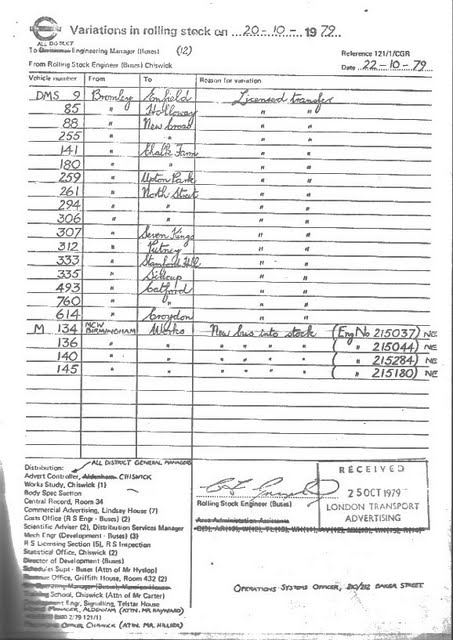 Variations in rolling stock on 20-10- 1979
ALL DISTRICT
To Engineering Manager (Buses) (12)
Reference 121/1/CGR
From Rolling Stock Engineer (Buses) Chiswick
Date 22-10-79
Vehicle number From To Reason for variation
DMS 9 Bromley Enfield Licensed transfer
85 " Holloway " "
88 " New Cross " "
255 " " " "
141 " Chalk Farm " "
180 " " " "
259 " Upton Park " "
261 " North Street " "
294 " " " "
306 " " " "
307 " Seven Kings " "
312 " Putney " "
333 " Stamford Hill " "
335 " Sidcup " "
493 " Catford " "
760 " " " "
614 " Croydon " "
M 134 NEW BIRMINGHAM Works New bus into stock (Eng No 215037) NE
136 " " " " " " ( " 215044) NE
140 " " " " " " ( " 215284) NE
145 " " " " " " ( " 215180) NE
Distribution: ALL DISTRICT GENERAL MANAGERS
Advert Controller, Aldenham CHISWICK
Works Study, Chiswick (1)
Body Spec Section
Central Record, Room 34
Commercial Advertising, Lindsay House (7)
Costs Office (R S Engr - Buses) (2)
Scientific Adviser (2), Distribution Services Manager
Mech Engr (Development - Buses) (3)
R S Licensing Section (5), R S Inspection
Statistical Office, Chiswick (2)
Director of Development (Buses)
Schedules Supt - Buses (Attn of Mr Hyslop)
Office, Griffith House, Room 432 (2)
School, Chiswick (Attn of Mr Carter)
Engr, Signalling, Telstar House
MANAGER, ALDENHAM (ATTN. MR MAYNARD)
2/79 121/1)
OFFICER CHISWICK (ATTN. MR HILLIER)
Rolling Stock Engineer (Buses)
RECEIVED
25 OCT 1979
LONDON TRANSPORT
ADVERTISING
OPERATIONS SYSTEMS OFFICER, BAKER STREET